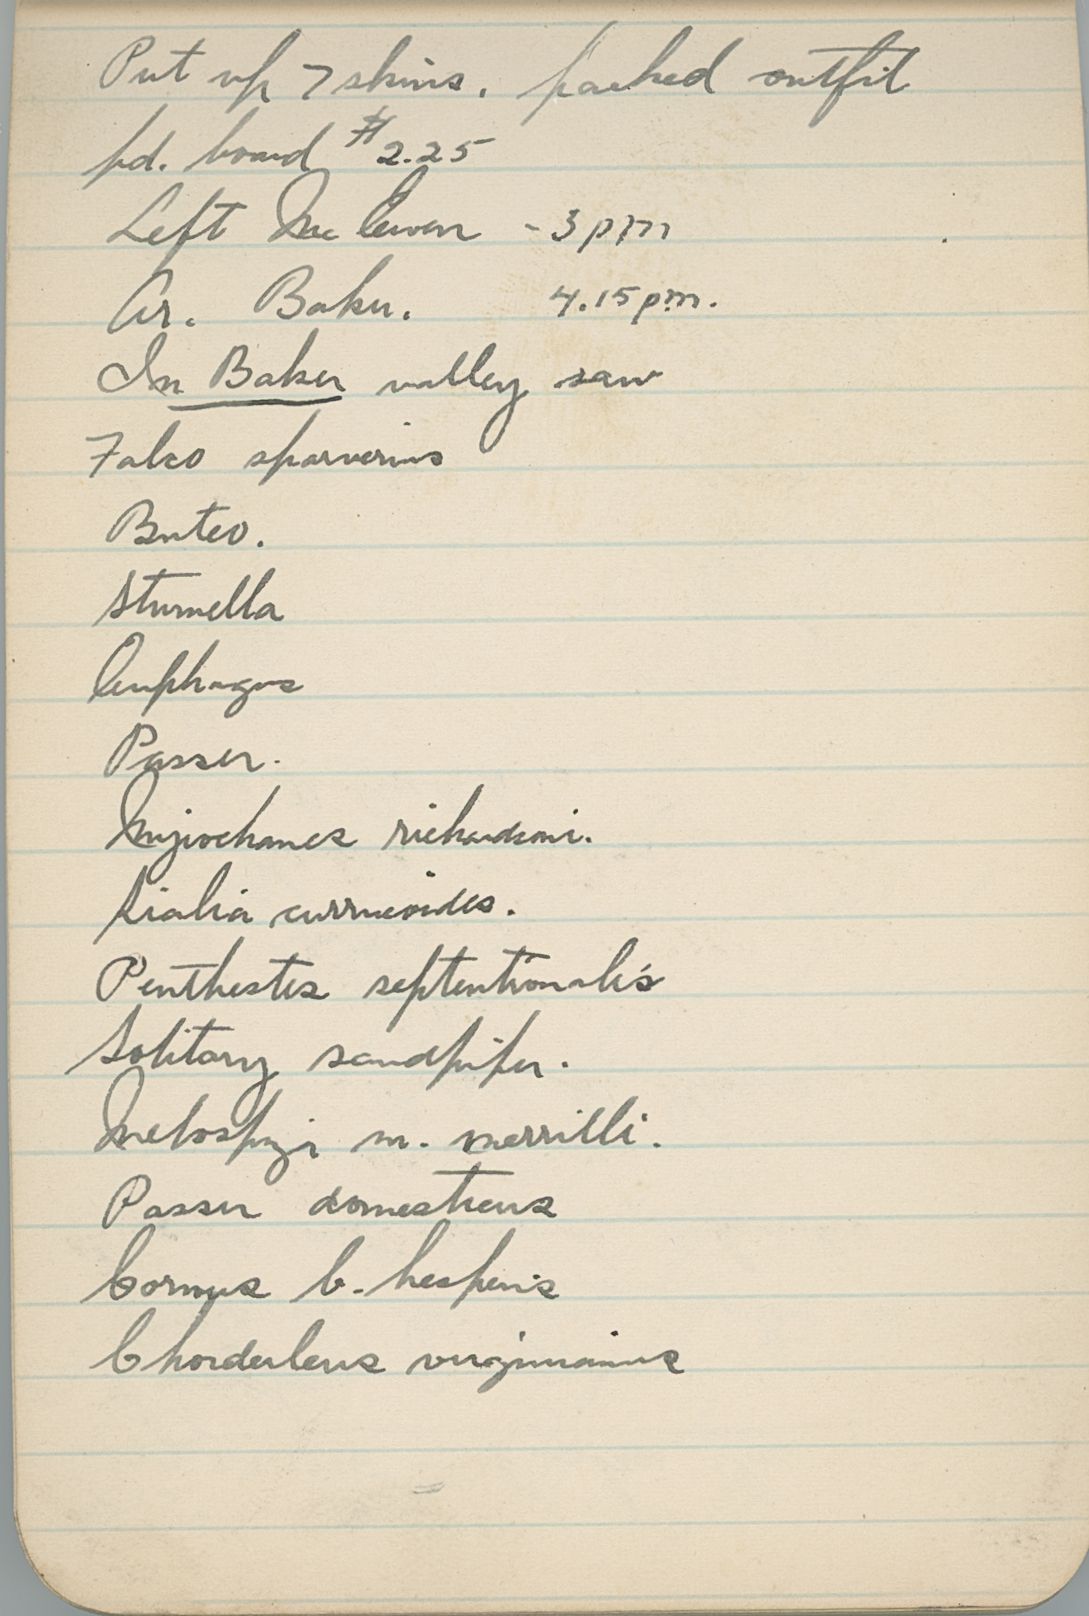 Put up 7 skins. packed outfit
pd. board $2.25
Left McEwen - 3 pm
Ar. Baker. 4.15 pm.
In Baker valley saw
Falco sparverius
Buteo.
Sturnella
Euphagus
Passer.
Myiochanes richardsoni.
Sialia currucoides.
Penthestes septentrionalis
Solitary sandpiper.
Melospiza m. merrilli.
Passer domesticus
Corvus b. hesperis
Chordeiles virginianus